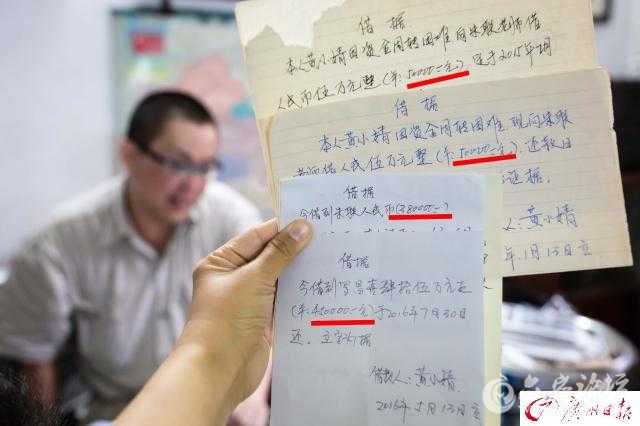 借 据
本人黄小婧因资金周转困难向朱聪老师借
人民币伍万元整(¥:50000一元)
借 据
本人黄小婧因资金周转困难现向朱聪
老师借人民伍万元整(¥:50000一元),还款日
人:黄小婧
年1月13日立
借据
今借到朱聪人民币(¥:8000一)
借据
今借到 肆拾伍万元正
(¥:450000一元)于2016年7月30日
还。立字为据
借款人:黄小婧
2016年5月13日立
广州日报